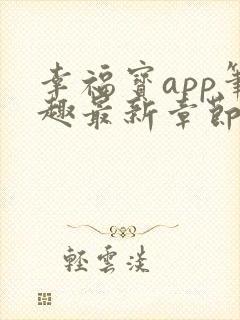 幸福寳app筆
趣最新章節
輕雲淡